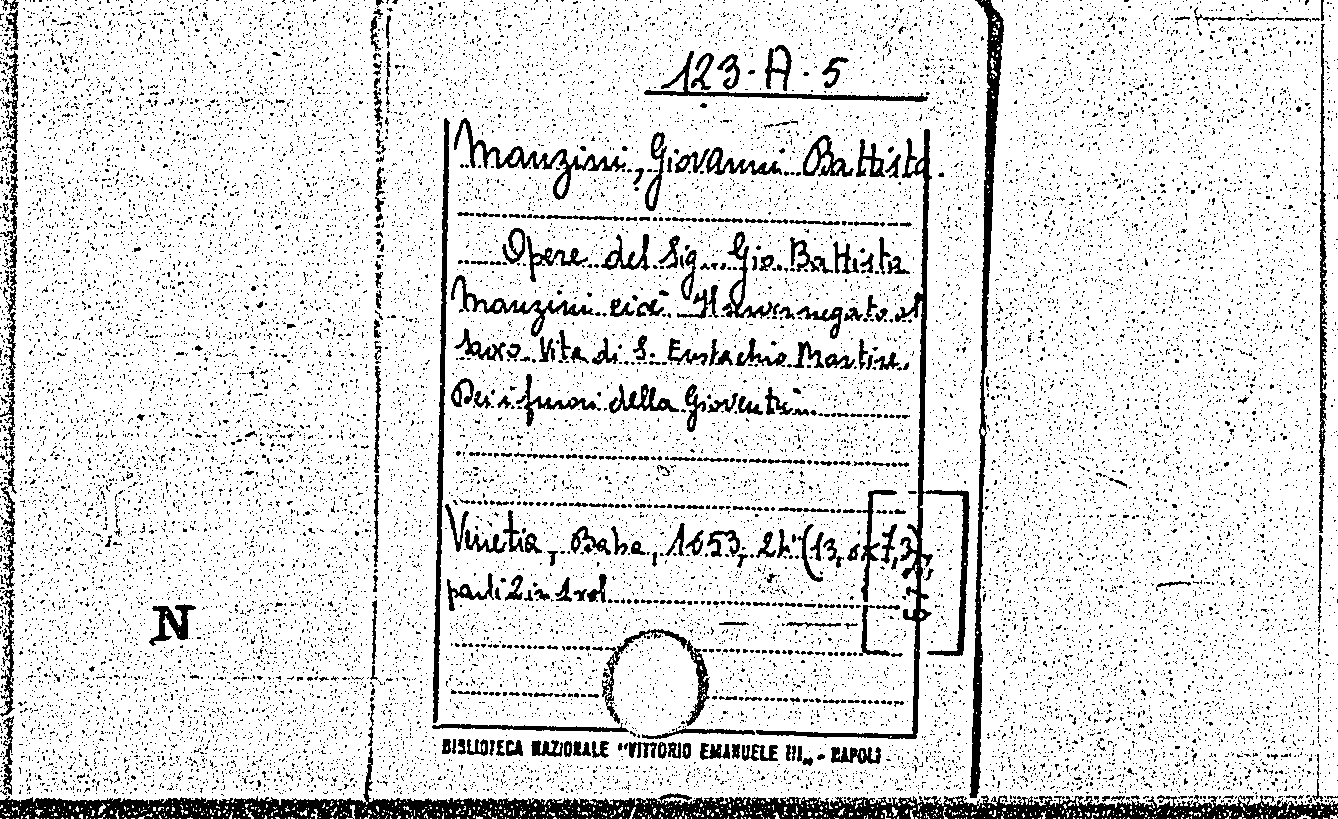 123·A·5
Manzini, Giovanni Battista.
Opere del Sig. Gio. Battista
Manzini cioè Il negato al
Saxo. Vita di S. Eustachio Martire.
Dei i furori della Gioventù
Venetia, Baba, 1653, 24° (13, x7,3),
parti 2 in 1 vol
N
BIBLIOTECA NAZIONALE "VITTORIO EMANUELE III„ - NAPOLI